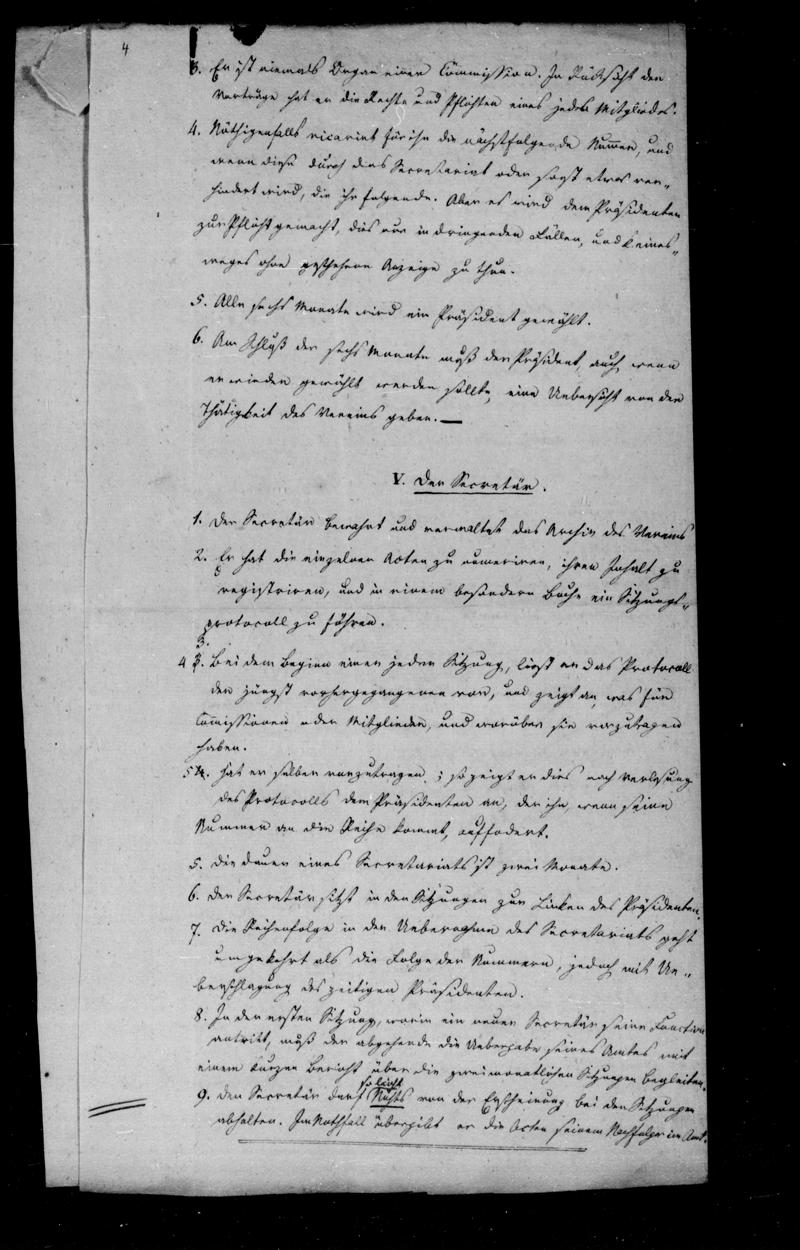 4
3. Er ist niemals Organ einer Commission. In Rücksicht der
Vorträge hat er die Rechte und Pflichten eines jeden Mitgliedes.
4. Nöthigenfalls vicariirt für ihn die nächstfolgende Nummer, und
wenn diese durch das Secretariat oder sonst etwas ver„
hindert wird, die ihr folgende. Aber es wird dem Präsidenten
zur Pflicht gemacht, dies nur in dringenden Fällen, und keines„
weges ohne geschehene Anzeige zu thun.
5. Alle sechs Monate wird ein Präsident gewählt.
6. Am Schluß der sechs Monate muß der Präsident, auch wenn
er wieder gewählt werden sollte, eine Uebersicht von der
Thätigkeit des Vereins geben. —
V. Der Secretär.
1. Der Secretär bewahrt und verwaltet das Archiv des Vereins
2. Er hat die einzelnen Acten zu numeriren, ihren Inhalt zu
registriren, und in einem besondern Buche ein Sitzungs„
protocoll zu führen.
3.
4 3. Bei dem Beginn einer jeden Sitzung, liest er das Protocoll
der jüngst vorhergegangenen vor, und zeigt an, was für
Commissionen oder Mitglieder, und worüber sie vorzutragen
haben.
5 4. Hat er selber vorzutragen; so zeigt er dies nach Verlesung
des Protocolls dem Präsidenten an, der ihn, wenn seine
Nummer an die Reihe kommt, auffodert.
5. Die Dauer eines Secretariats ist zwei Monate.
6. Der Secretär sitzt in den Sitzungen zur Linken des Präsidenten.
7. Die Reihenfolge in der Uebernahme des Secretariats geht
umgekehrt als die Folge der Nummern, jedoch mit Ue„
berschlagung des zeitigen Präsidenten.
8. In der ersten Sitzung, worin ein neuer Secretär seine Function
antritt, muß der abgehende die Uebergabe seines Amtes mit
einem kurzen Bericht über die zweimonatlichen Sitzungen begleiten.
so leicht
9. Den Secretär darf Nichts von der Erscheinung bei den Sitzungen
abhalten. Im Nothfall übergibt er die Acten seinem Nachfolger im Amt.